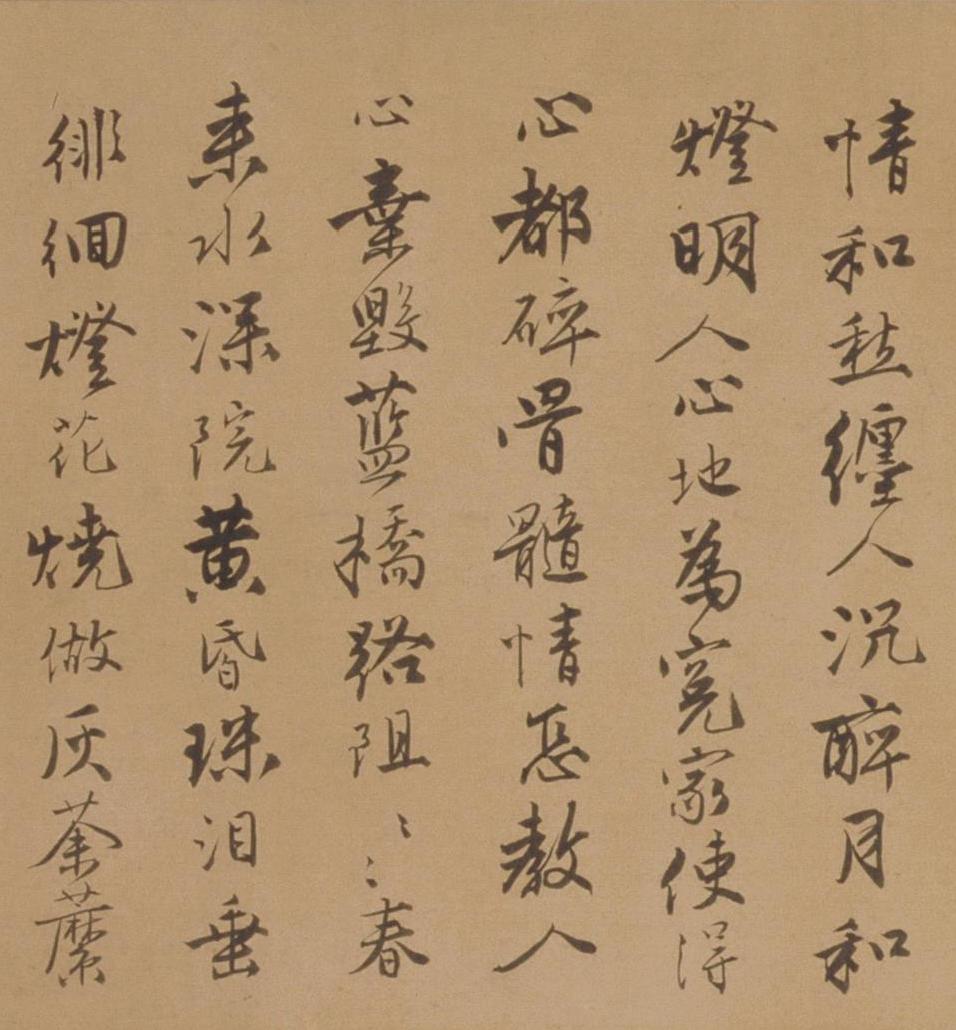 情和愁纏人沉醉月和
燈明人心地為寃家使得
心都碎骨髓情怎教人
心棄毀藍橋路阻〻〻春
来水深院黄昏珠泪垂
徘徊燈花燒做灰荼蘼